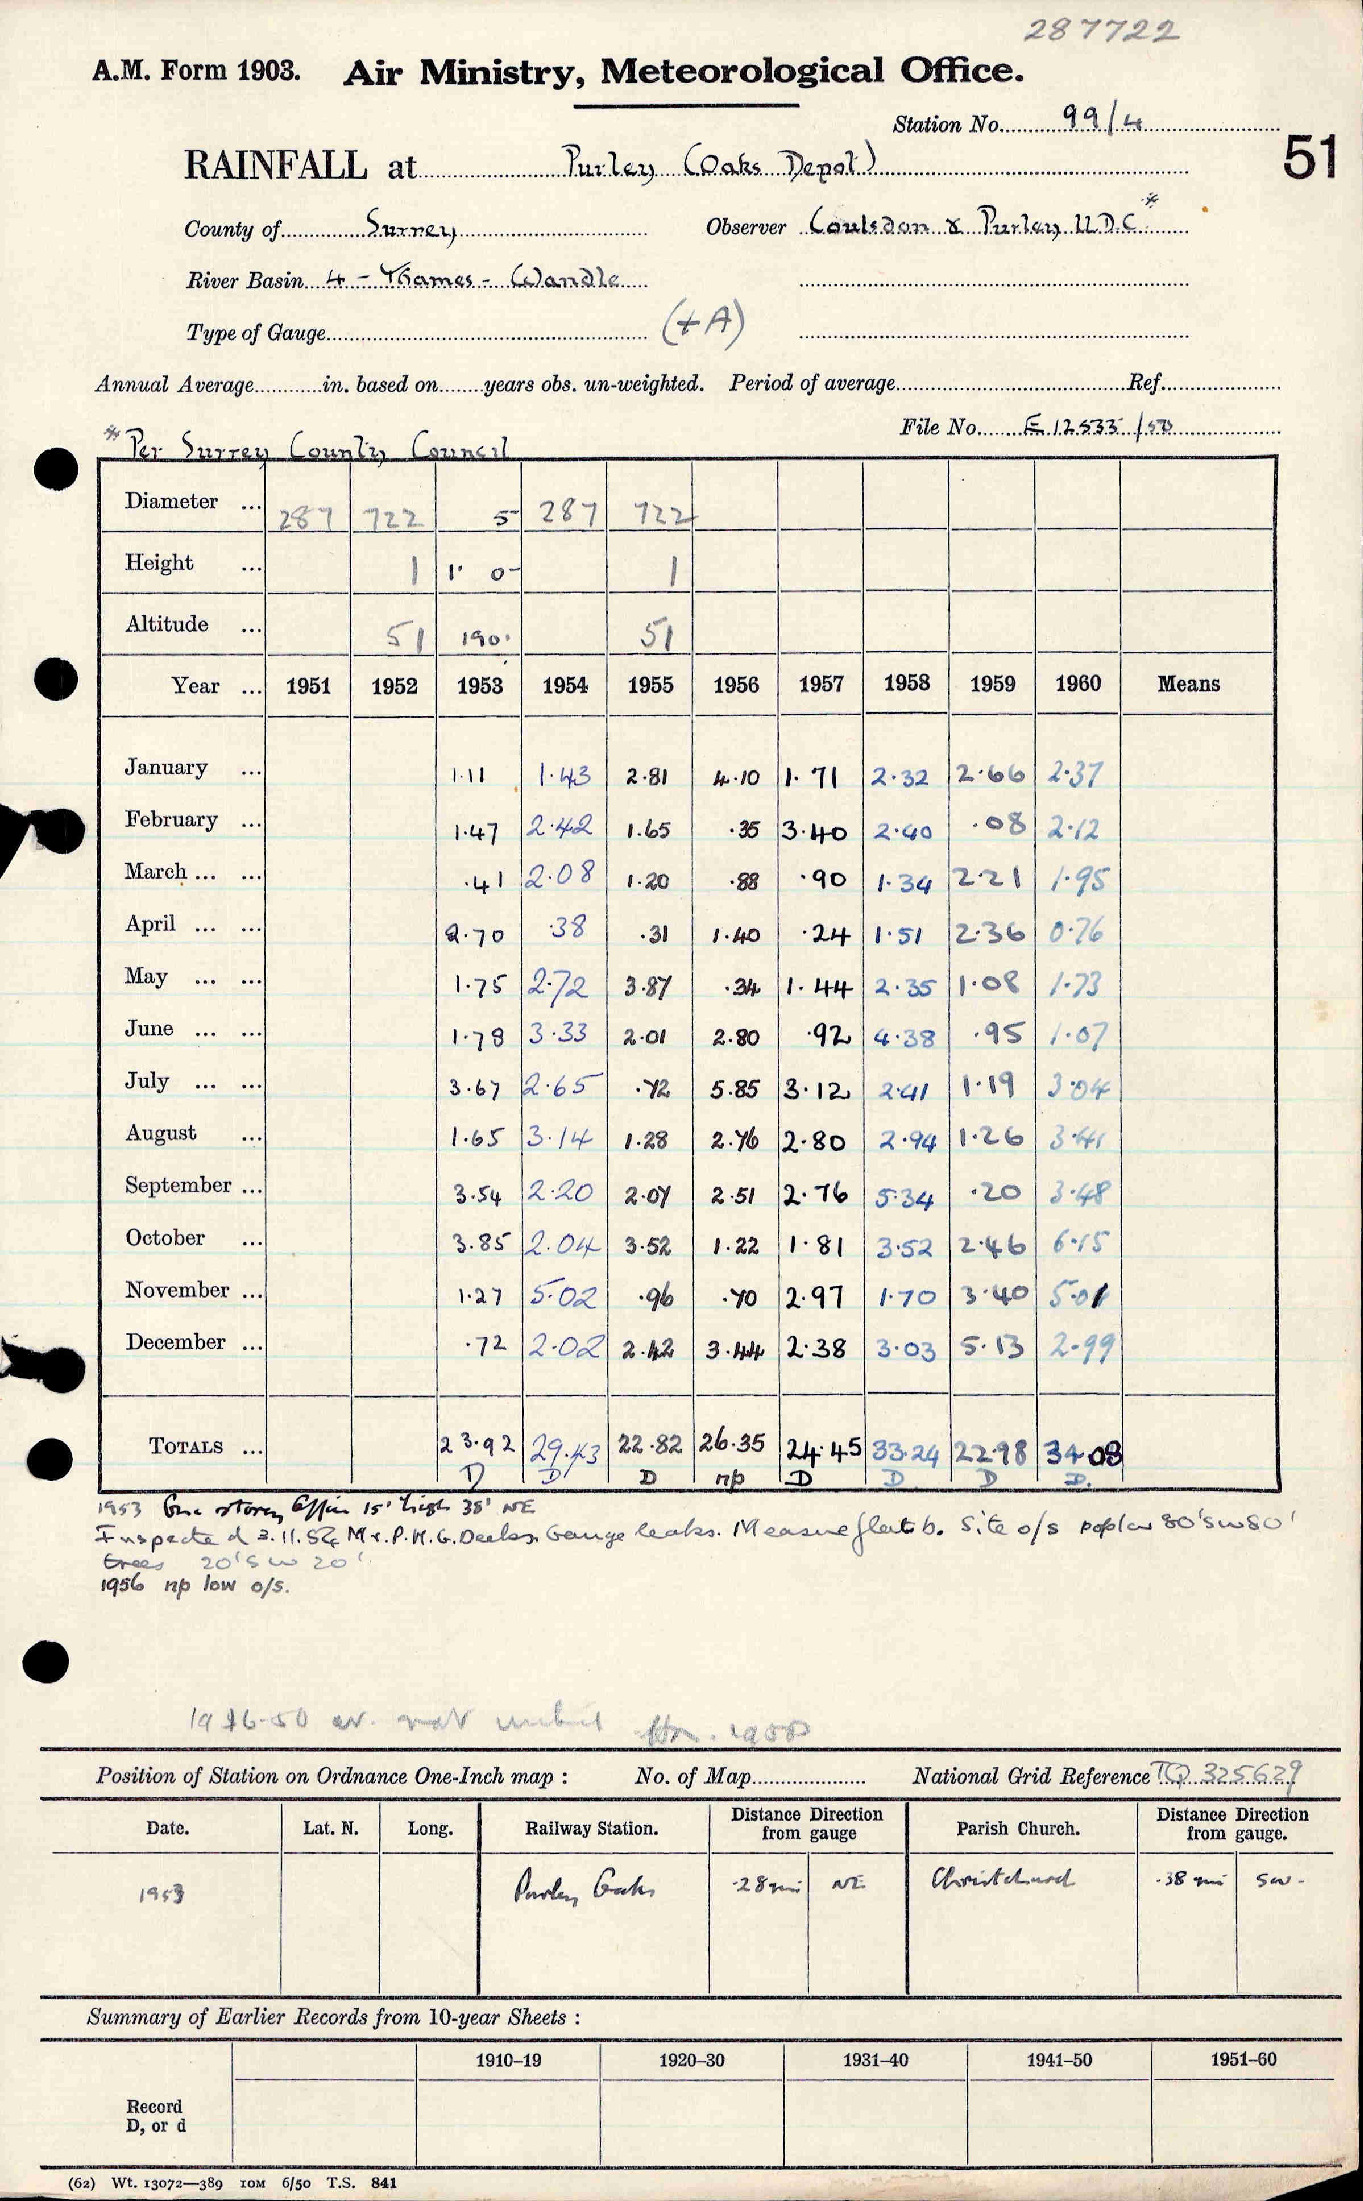 287722
A.M. Form 1903. Air Ministry, Meteorological Office.
Station No. 99/4
51
RAINFALL at Purley (Oaks Depot)
County of Surrey Observer Coulsdon & Purley U.D.C.*
River Basin 4 - Thames - Wandle
Type of Gauge (+A)
Annual Average in. based on years obs. un-weighted. Period of average Ref.
File No. E 12533/50
*Per Surrey County Council
Diameter ... 287 722 5 287 722
Height ... 1 1' 0" 1
Altitude ... 51 190' 51
Year ... 1951 1952 1953 1954 1955 1956 1957 1958 1959 1960 Means
January ... 1.11 1.43 2.81 4.10 1.71 2.32 2.66 2.37
February ... 1.47 2.42 1.65 .35 3.40 2.40 .08 2.12
March ... ... .41 2.08 1.20 .88 .90 1.34 2.21 1.95
April ... ... 2.70 .38 .31 1.40 .24 1.51 2.36 0.76
May ... ... 1.75 2.72 3.87 .34 1.44 2.35 1.08 1.73
June ... ... 1.78 3.33 2.01 2.80 .92 4.38 .95 1.07
July ... ... 3.67 2.65 .72 5.85 3.12 2.41 1.19 3.04
August ... 1.65 3.14 1.28 2.76 2.80 2.94 1.26 3.41
September ... 3.54 2.20 2.07 2.51 2.76 5.34 .20 3.48
October ... 3.85 2.04 3.52 1.22 1.81 3.52 2.46 6.15
November ... 1.27 5.02 .96 .70 2.97 1.70 3.40 5.01
December ... .72 2.02 2.42 3.44 2.38 3.03 5.13 2.99
TOTALS ... 23.92 29.43 22.82 26.35 24.45 33.24 22.98 34.08
D D D np D D D D.
1953 One storey Office 15' high 38' NE
Inspected 3.11.54 Mr. P.H.G. Gauge leaks. Measure flat b. Site o/s poplar 80' SW 80'
trees 20' SW 20'
1956 np low o/s.
1916-50 av. not until 1958
Position of Station on Ordnance One-Inch map : No. of Map National Grid Reference TQ 325629
Date. Lat. N. Long. Railway Station. Distance Direction from gauge Parish Church. Distance Direction from gauge.
1953 Purley Oaks .28 mi NE Christchurch .38 mi SW.
Summary of Earlier Records from 10-year Sheets :
1910–19 1920–30 1931–40 1941–50 1951–60
Record
D, or d
(62) Wt. 13072—389 10M 6/50 T.S. 841